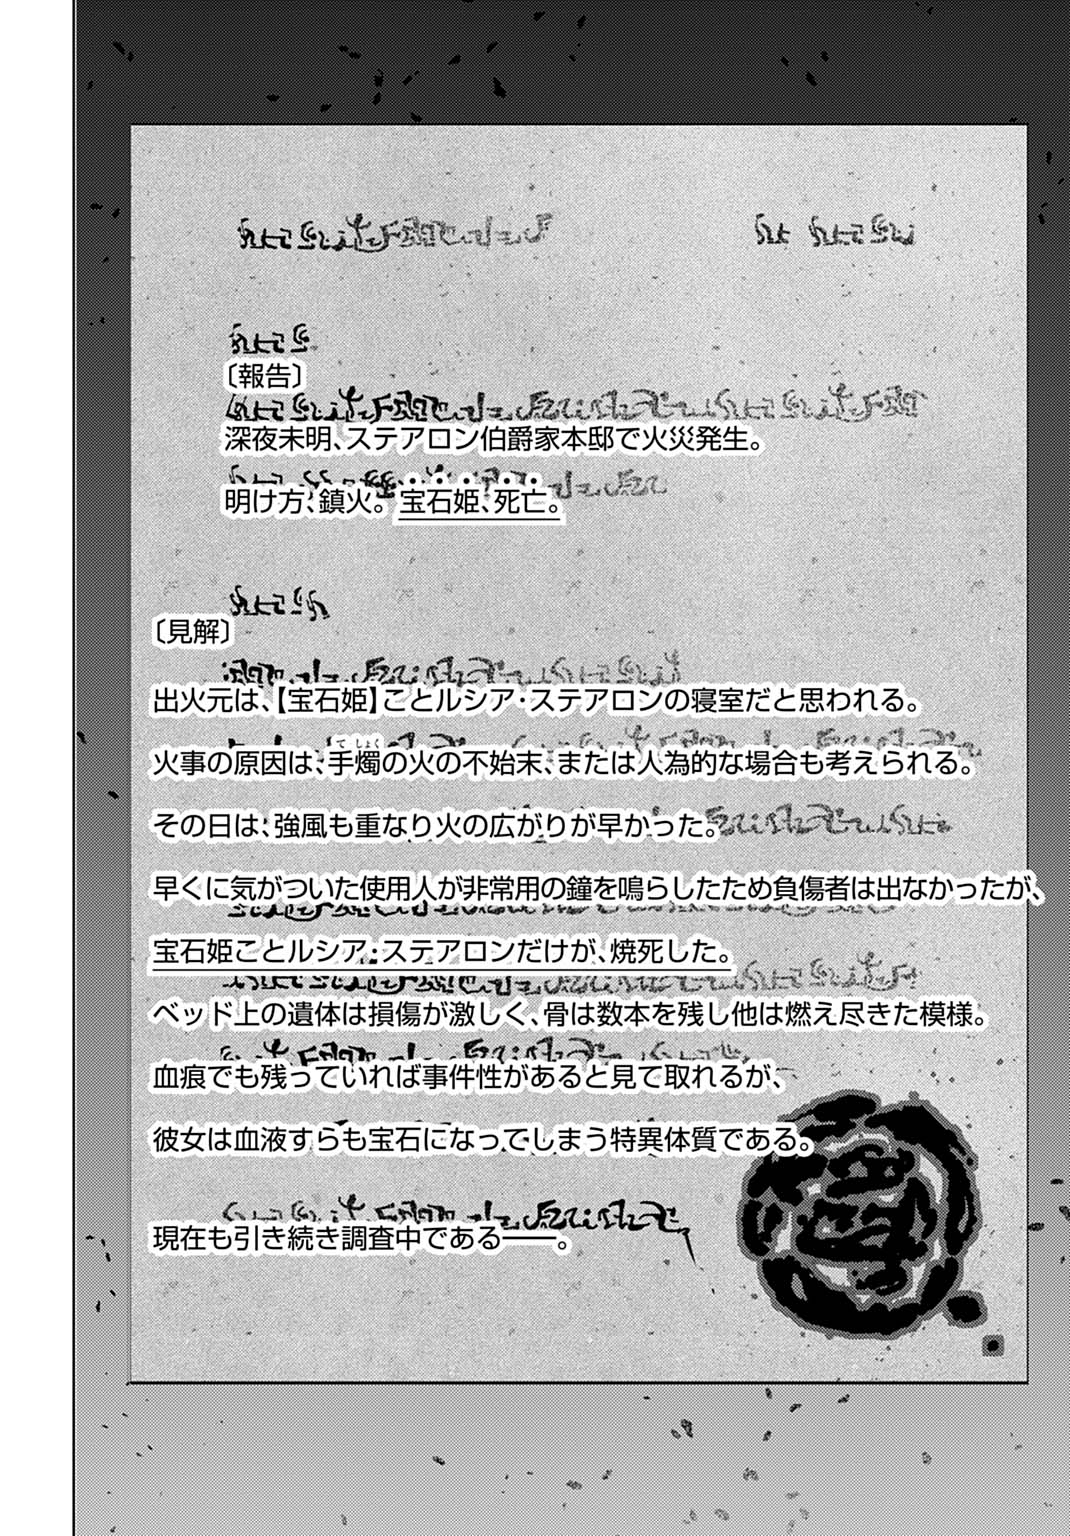 〔報告〕
深夜未明、ステアロン伯爵家本邸で火災発生。
明け方、鎮火。宝石姫、死亡。
〔見解〕
出火元は、【宝石姫】ことルシア・ステアロンの寝室だと思われる。
火事の原因は、手燭の火の不始末、または人為的な場合も考えられる。
その日は、強風も重なり火の広がりが早かった。
早くに気がついた使用人が非常用の鐘を鳴らしたため負傷者は出なかったが、
宝石姫ことルシア・ステアロンだけが、焼死した。
ベッド上の遺体は損傷が激しく、骨は数本を残し他は燃え尽きた模様。
血痕でも残っていれば事件性があると見て取れるが、
彼女は血液すらも宝石になってしまう特異体質である。
現在も引き続き調査中である――。